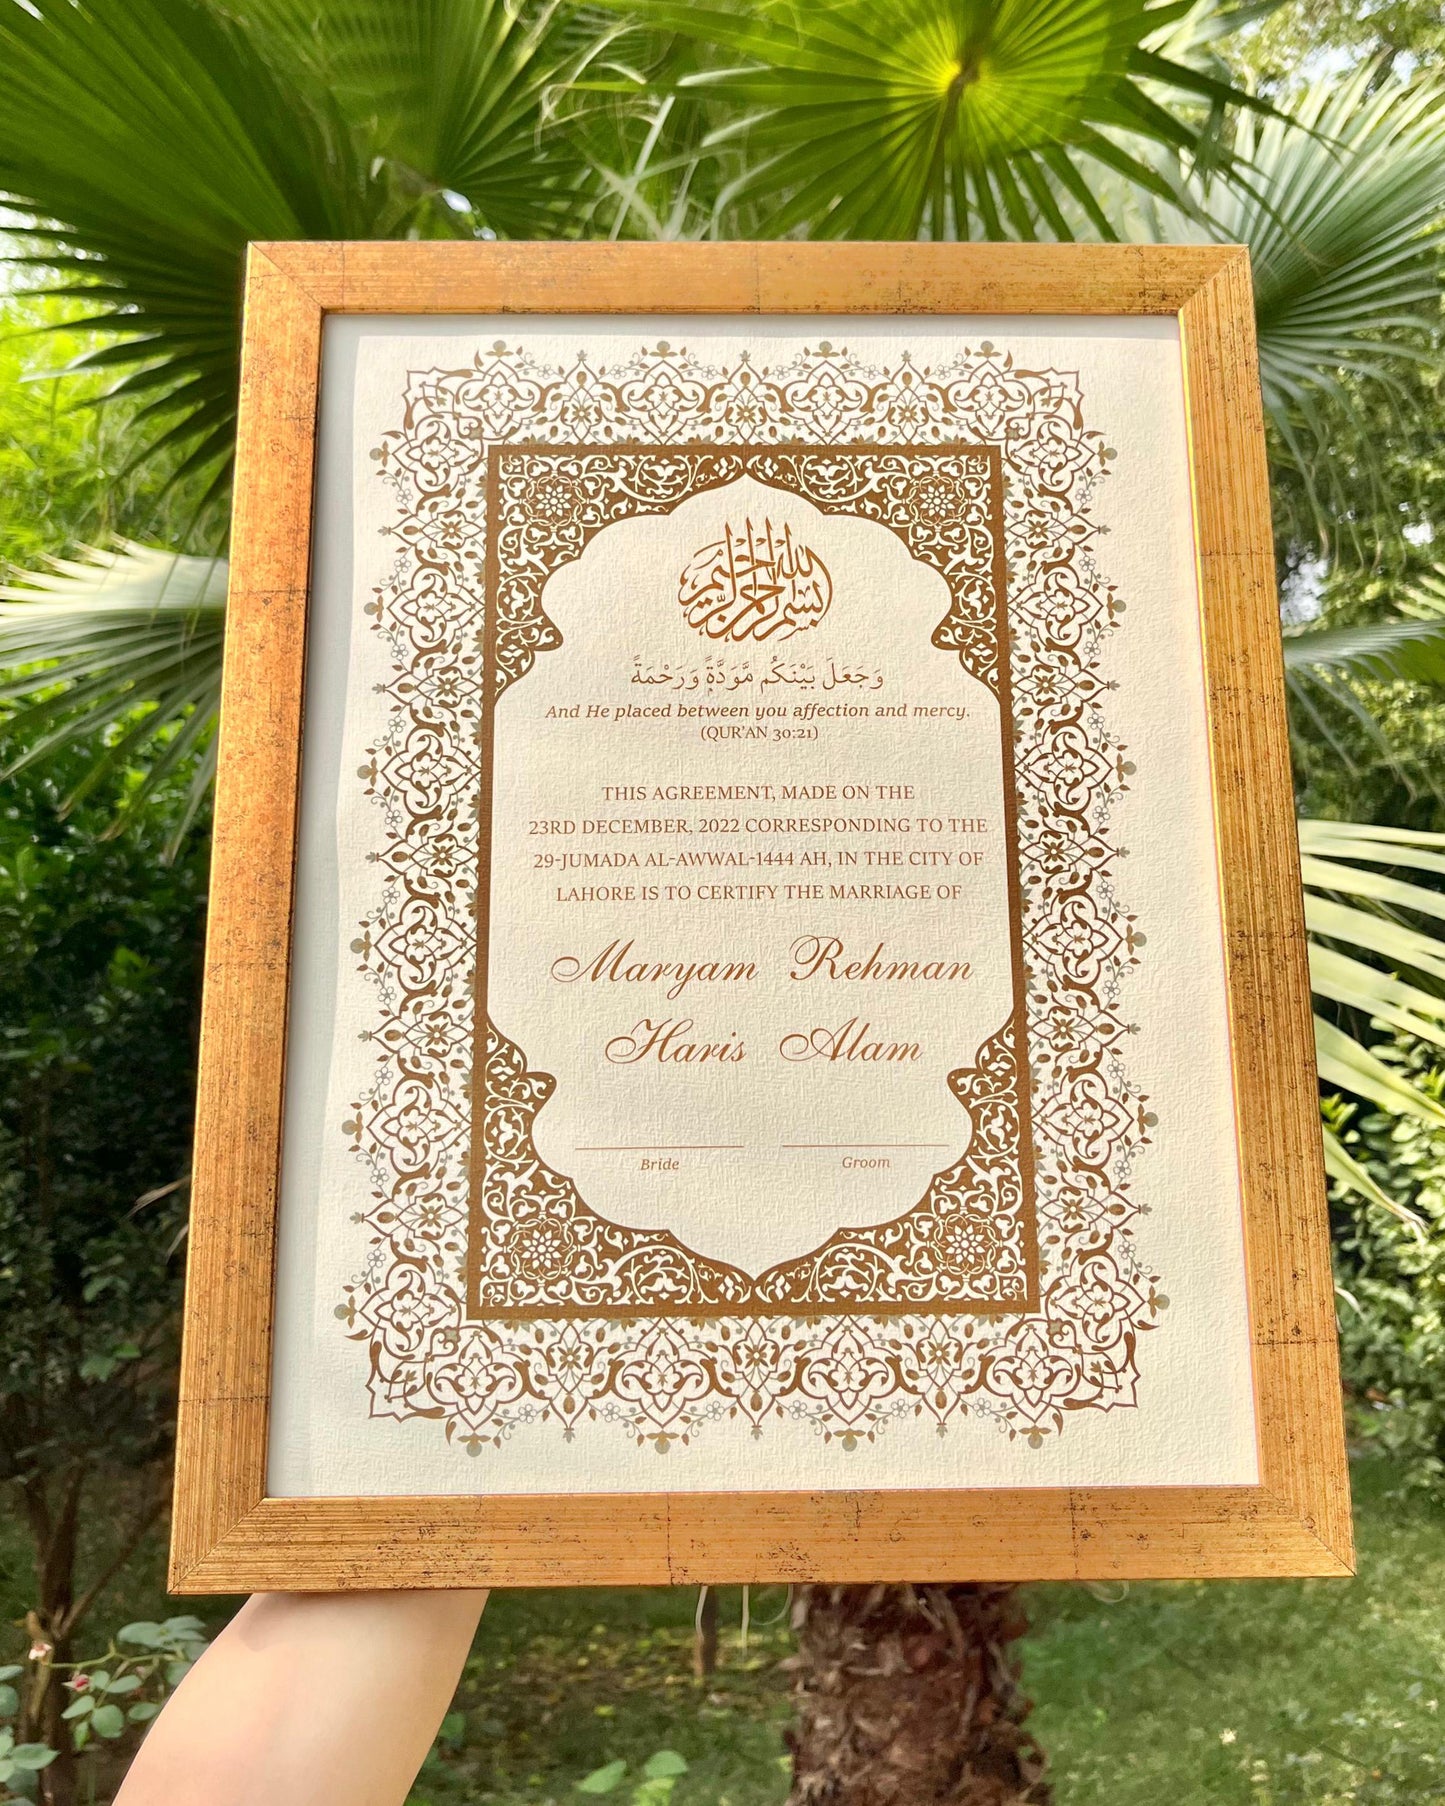 بسم الله الرحمن الرحيم
وَجَعَلَ بَيْنَكُم مَّوَدَّةً وَرَحْمَةً
And He placed between you affection and mercy.
(QUR'AN 30:21)
THIS AGREEMENT, MADE ON THE
23RD DECEMBER, 2022 CORRESPONDING TO THE
29-JUMADA AL-AWWAL-1444 AH, IN THE CITY OF
LAHORE IS TO CERTIFY THE MARRIAGE OF
Maryam Rehman
Haris Alam
Bride Groom